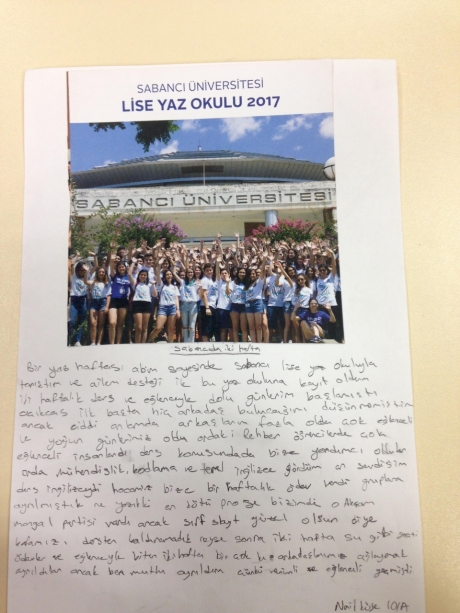 SABANCI ÜNİVERSİTESİ
LİSE YAZ OKULU 2017
SABANCI ÜNİVERSİTESİ
Sabancıda iki hafta
Bir yaz haftası abim sayesinde Sabancı lise yaz okuluyla
tanıştım ve ailem desteği ile bu yaz okuluna kayıt oldum
iki haftalık ders ve eğlenceyle dolu günlerim başlamıştı
açıkcası ilk başta hiç arkadaş bulucağımı düşünmemiştim
ancak ciddi anlamda arkadaşlarım fazla oldu çok eğlenceli
ve yoğun günlerimiz oldu ordaki rehber öğrencilerde çok
eğlenceli insanlardı ders konusundada bize yardımcı oldular
orda mühendislik, kodlama ve temel ingilizce gördüm en sevdiğim
ders ingilizceydi hocamız bize bir haftalık ödev verdi gruplara
ayrılmıştık ne yazıkki en kötü proje bizimdi o akşam
mangal partisi vardı ancak sırf slayt güzel olsun diye
kalmamızı, dersten kaldırmadık neyse sonra iki hafta su gibi geçti
ödevler ve eğlenceyle biten iki hafta bir çok arkadaşlarımız ağlayarak
ayrıldılar ancak ben mutlu ayrıldım çünkü verimli ve eğlenceli geçmişti
10/A